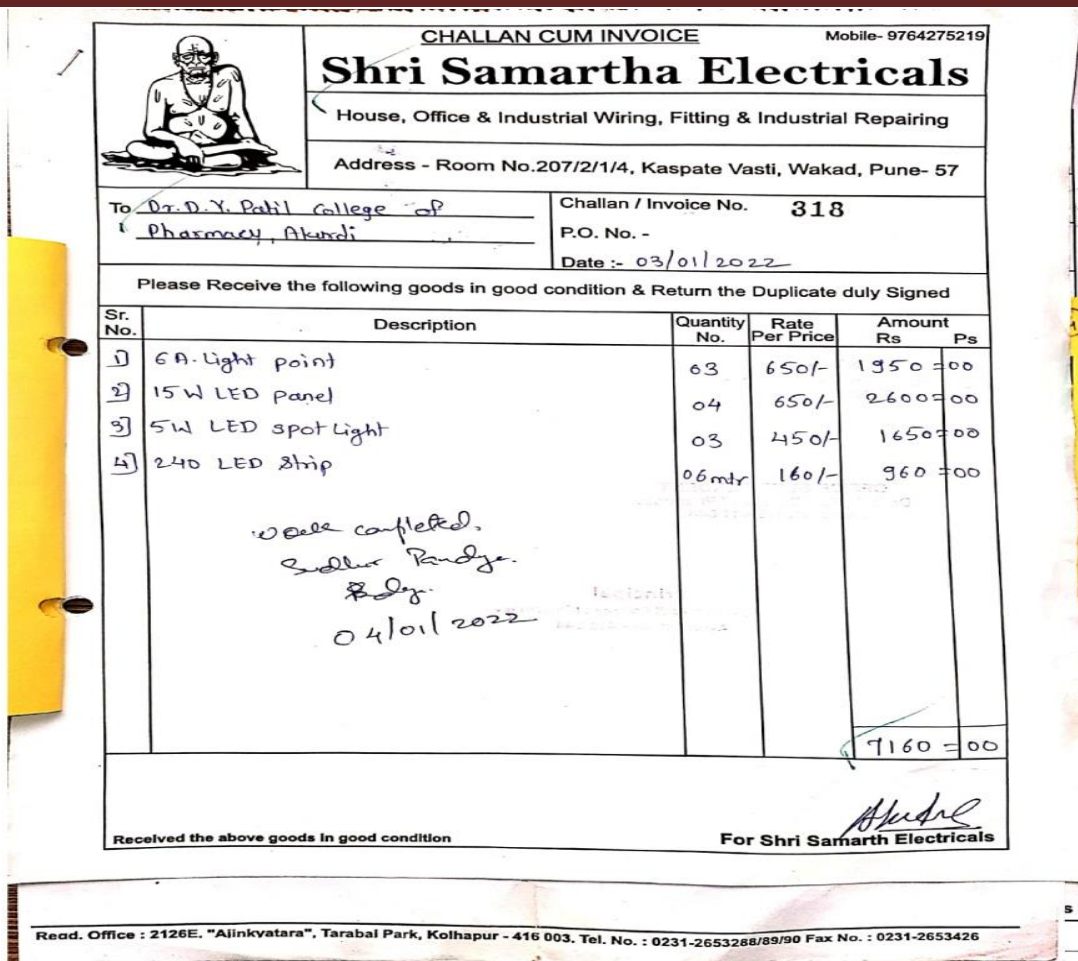 CHALLAN CUM INVOICE
Mobile- 9764275219
Shri Samartha Electricals
House, Office & Industrial Wiring, Fitting & Industrial Repairing
Address - Room No.207/2/1/4, Kaspate Vasti, Wakad, Pune- 57
To Dr. D. Y. Patil College of
Pharmacy, Akurdi
Challan / Invoice No. 318
P.O. No. -
Date :- 03/01/2022
Please Receive the following goods in good condition & Return the Duplicate duly Signed
Sr. No. Description Quantity No. Rate Per Price Amount Rs Ps
1] 6A. Light point 03 650/- 1950=00
2] 15W LED Panel 04 650/- 2600=00
3] 5W LED spot Light 03 450/- 1650=00
4] 240 LED Strip 06 mtr 160/- 960=00
work completed.
04/01/2022
7160=00
Received the above goods in good condition
For Shri Samarth Electricals
Read. Office : 2126E. "Ajinkyatara", Tarabai Park, Kolhapur - 416 003. Tel. No. : 0231-2653288/89/90 Fax No. : 0231-2653426